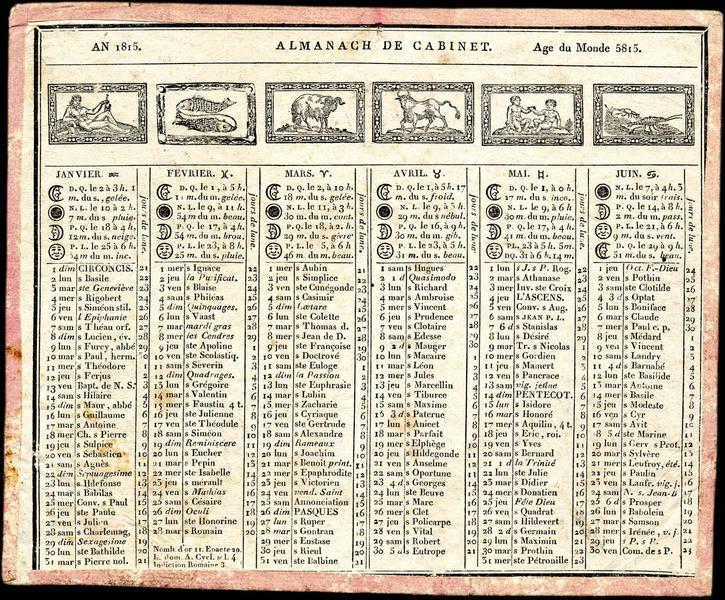 AN 1815. ALMANACH DE CABINET. Age du Monde 5815.
JANVIER. ♒
D. Q. le 2 à 3 h. 1
m. du s., gelée.
N. L. le 10 à 2 h.
7 m. du s pluie.
P. Q. le 18 à 4 h.
12 m. du s. neige.
P. L. le 25 à 6 h.
jours de lune.
1 dim CIRCONCIS. 21
2 lun s Basile 22
3 mar ste Geneviève 23
4 mer s Rigobert 24
5 jeu s Siméon stil. 25
6 ven L'Epiphanie 26
7 sam s Théau orf. 27
8 dim s Lucien, év. 28
9 lun s Furcy, abbé 29
10 mar s Paul, herm. 30
11 mer s Théodore 1
12 jeu s Ferjus 2
13 ven Bapt. de N. S. 3
14 sam s Hilaire 4
15 dim s Maur, abbé 5
16 lun s Guillaume 6
17 mar s Antoine 7
18 mer Ch. s Pierre 8
19 jeu s Sulpice 9
20 ven s Sébastien 10
21 sam s Agnès 11
22 dim Septuagesime 12
23 lun s Ildefonse 13
24 mar s Babilas 14
25 mer Conv. s Paul 15
26 jeu ste Paule 16
27 ven s Julien 17
28 sam s Charlemag. 18
29 dim Sexagesime 19
30 lun ste Bathilde 20
31 mar s Pierre nol. 21
FEVRIER. ♓
D. Q. le 1, à 5 h.
m. du m. gelée.
N. L. le 9, à 11 h.
54 m. du m. beau.
P. Q. le 17, à 4 h.
54 m. du m. brou.
P. L. le 23, à 8 h.
25 m. du s. pluie.
jours de lune.
1 mer s Ignace 22
2 jeu la Purificat. 23
3 ven s Blaise 24
4 sam s Philéas 25
5 dim Quinquages. 26
6 lun s Vaast 27
7 mar mardi gras 28
8 mer les Cendres 29
9 jeu ste Apoline 1
10 ven ste Scolastiq. 2
11 sam s Severin 3
12 dim Quadrages. 4
13 lun s Grégoire 5
14 mar s Valentin 6
15 mer s Faustin 4 t. 7
16 jeu ste Julienne 8
17 ven ste Théodule 9
18 sam s Siméon 10
19 dim Reminiscere 11
20 lun s Eucher 12
21 mar s Pepin 13
22 mer ste Isabelle 14
23 jeu s mérault 15
24 ven s Mathias 16
25 sam s Césaire 17
26 dim Oculi 18
27 lun ste Honorine 19
28 mar s Romain 20
Nomb. d'or 11. Epacte 20.
L. dom. A. Cycl. s l. 4.
Indiction Romaine 3.
MARS. ♈
D. Q. le 2, à 10 h.
18 m. du s. gelée.
N. L. le 11, à 3 h.
30 m. du m. couv.
P. Q. le 18, à 2 h.
29 m. du s. givre
P. L. le 25, à 6 h
46 m. du m. beau.
jours de lune.
1 mer s Aubin 21
2 jeu s Simplice 22
3 ven ste Cunégonde 23
4 sam s Casimir 24
5 dim Lætare 25
6 lun ste Colette 26
7 mar s Thomas d. 27
8 mer s Jean de D. 28
9 jeu ste Françoise 29
10 ven s Doctrové 30
11 sam ste Euloge 1
12 dim la Passion 2
13 lun ste Euphrasie 3
14 mar s Lubin 4
15 mer s Zacharie 5
16 jeu s Cyriaque 6
17 ven ste Gertrude 7
18 sam s Alexandre 8
19 dim Rameaux 9
20 lun s Joachim 10
21 mar s Benoît print. 11
22 mer s Epaphrodite 12
23 jeu s Victorien 13
24 ven vend. Saint 14
25 sam Annonciation 15
26 dim PASQUES 16
27 lun s Ruper 17
28 mar s Gontran 18
29 mer s Eustase 19
30 jeu s Rieul 20
31 ven ste Balbine 21
AVRIL. ♉
D. Q. le 1, à 5 h. 17
m. du s. froid.
N. L. le 9, à 5 h
29 m. du s nébul.
P. Q. le 16, à 9 h.
30 m. du s. gib.
P. L. le 23, à 5 h.
31 m. du s. beau.
jours de lune.
1 sam s Hugues 22
2 d Quasimodo 23
3 lun s Richard 24
4 mar s Ambroise 25
5 mer s Vincent 26
6 jeu s Prudence 27
7 ven s Clotaire 28
8 sam s Edesse 29
9 2 d s Mauger 30
10 lun s Macaire 1
11 mar s Léon 2
12 mer s Jules 3
13 jeu s Marcellin 4
14 ven s Tiburce 5
15 sam s Maxime 6
16 3 d s Paterne 7
17 lun s Anicet 8
18 mar s Parfait 9
19 mer s Elphège 10
20 jeu s Hildegonde 11
21 ven s Anselme 12
22 sam s Oportune 13
23 4 d s Georges 14
24 lun ste Beuve 15
25 mar s Marc 16
26 mer s Clet 17
27 jeu s Policarpe 18
28 ven s Vital 19
29 sam s Robert 20
30 5 d s Eutrope 21
MAI. ♊
D. Q. le 1, à 0 h.
17 m. du s. inco.
N. L. le 9, à 6 h
30 m. du m. pluie.
P. Q. le 16, à 4 h.
41 m. du m. beau.
P. L. 23, à 5 h. 5m.
DQ. 31 à 6 h. 14 m.
jours de lune.
1 lun s J. s P. Rog. 22
2 mar s Athanase 23
3 mer Inv. ste Croix 24
4 jeu L'ASCENS. 25
5 ven Conv. s Aug. 26
6 sam s JEAN P. L. 27
7 6 d s Stanislas 28
8 lun s Désiré 29
9 mar Tr. s Nicolas 1
10 mer s Gordien 2
11 jeu s Mamert 3
12 ven s Pancrace 4
13 sam vig. jeûne 5
14 dim PENTECOT. 6
15 lun s Isidore 7
16 mar s Honoré 8
17 mer s Aquilin, 4 t. 9
18 jeu s Eric, roi. 10
19 ven s Yves 11
20 sam s Bernard 12
21 1 d la Trinité 13
22 lun ste Julie 14
23 mar s Didier 15
24 mer s Donatien 16
25 jeu Fête Dieu 17
26 ven s Quadrat 18
27 sam s Hildevert 19
28 2 d s Germain 20
29 lun s Maximin 21
30 mar s Prothin 22
31 mer ste Pétronille 23
JUIN. ♋
N. L. le 7, à 4 h. 3
m. du soir
P. Q. le 14, à 8 h
2 m. du m. pass.
P. L. le 21, à 6 h
9 m. du s. vent.
D. Q. le 29 à 9 h
51 m. du s. beau.
jours de lune.
1 jeu Oct. F.-Dieu 24
2 ven s Pothin 25
3 sam ste Clotilde 26
4 3 d s Optat 27
5 lun s Boniface 28
6 mar s Claude 29
7 mer s Paul e. p. 30
8 jeu s Médard 1
9 ven s Vincent 2
10 sam s Landry 3
11 4 d s Barnabé 4
12 lun ste Basilide 5
13 mar s Antoine 6
14 mer s Basile 7
15 jeu s Modeste 8
16 ven s Cyr 9
17 sam s Avit 10
18 5 d ste Marine 11
19 lun s Gerv. s Prot. 12
20 mar s Sylvère 13
21 mer s Leufroy, été. 14
22 jeu s Paulin 15
23 ven s Lanfr. vig. j. 16
24 sam N. s. Jean-B 17
25 6 d s Prosper 18
26 lun s Babolein 19
27 mar s Samson 20
28 mer s Irénée, v. j. 21
29 jeu s P. s P. 22
30 ven Com. de s P. 23